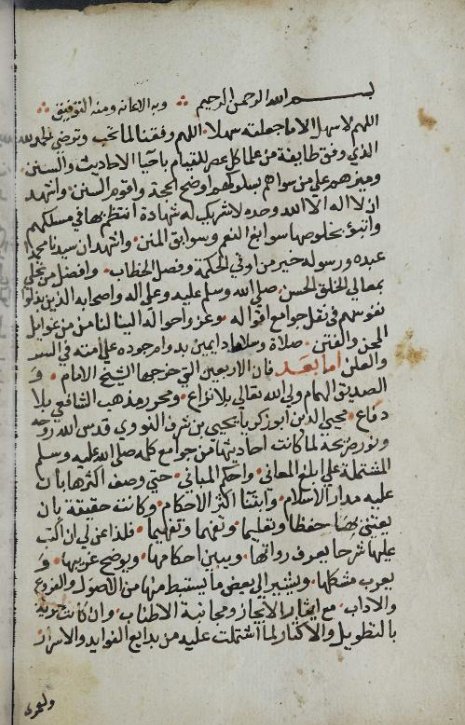 بسم الله الرحمن الرحيم وبه الاعانة ومنه التوفيق
اللهم لا سهل الا ما جعلته سهلا اللهم وفقنا لما تحب وترضى الحمد لله
الذي وفق طايفة من علما كل عصر للقيام باحيا الاحاديث والسنن
وميزهم على من سواهم بسلوكهم اوضح المحجة واقوم السنن واشهد
ان لا اله الا الله وحده لا شريك له شهادة انتظم بها في مسلكهم
واتبوء بخلوصها سوابغ النعم وسوابق المنن واشهد ان سيدنا محمدا
عبده ورسوله خير من اوتي الحكمة وفصل الخطاب وافضل من تحلى
بمعالي الخلق الحسن صلي الله وسلم عليه وعلى اله واصحابه الذين بذلوا
نفوسهم في نقل جوامع اقواله وعز واحواله الينا لنا من من غوايل
المحن والفتن صلاة وسلاما دايمين بدوام جوده علي امته في السر
والعلن اما بعد فان الاربعين التي خرجها الشيخ الامام و
الصديق الهمام ولي الله تعالى بلا نزاع ومحرر مذهب الشافعي بلا
دفاع محيي الدين ابو زكريا يحيي بن شرف النووي قدس الله روحه
ونور ضريحه لما كانت احاديثها من جوامع كلمه صلي الله عليه وسلم
المشتملة علي ابلغ المعاني واحكم المباني حتي وصف اكثرها بان
عليه مدار الاسلام وابتنا اكثر الاحكام وكانت حقيقة بان
يعتني بها حفظا وتعليما وتفهما وتفهيما فلذا عن لي ان اكتب
عليها شرحا يعرف رواتها ويبين احكامها ويوضح غريبها و
يعرب مشكلها ويشير الي بعض ما يستنبط منها من الاصول والفروع
والاداب مع ايثار الايجاز ومجانبة الاطناب وان كانت جديرة
بالتطويل والاكثار لما اشتملت عليه من بدايع الفوايد والاسرار